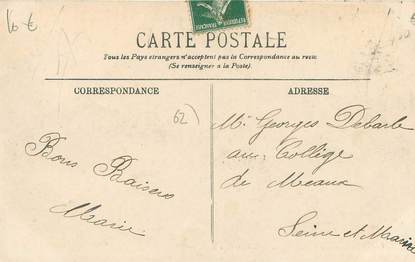 16 €
CARTE POSTALE
Tous les Pays étrangers n'acceptent pas la Correspondance au recto
(Se renseigner à la Poste).
CORRESPONDANCE
ADRESSE
62)
Mr Georges Debarle
au Collège
de Meaux
Seine et Marne
Bons Baisers
Marie